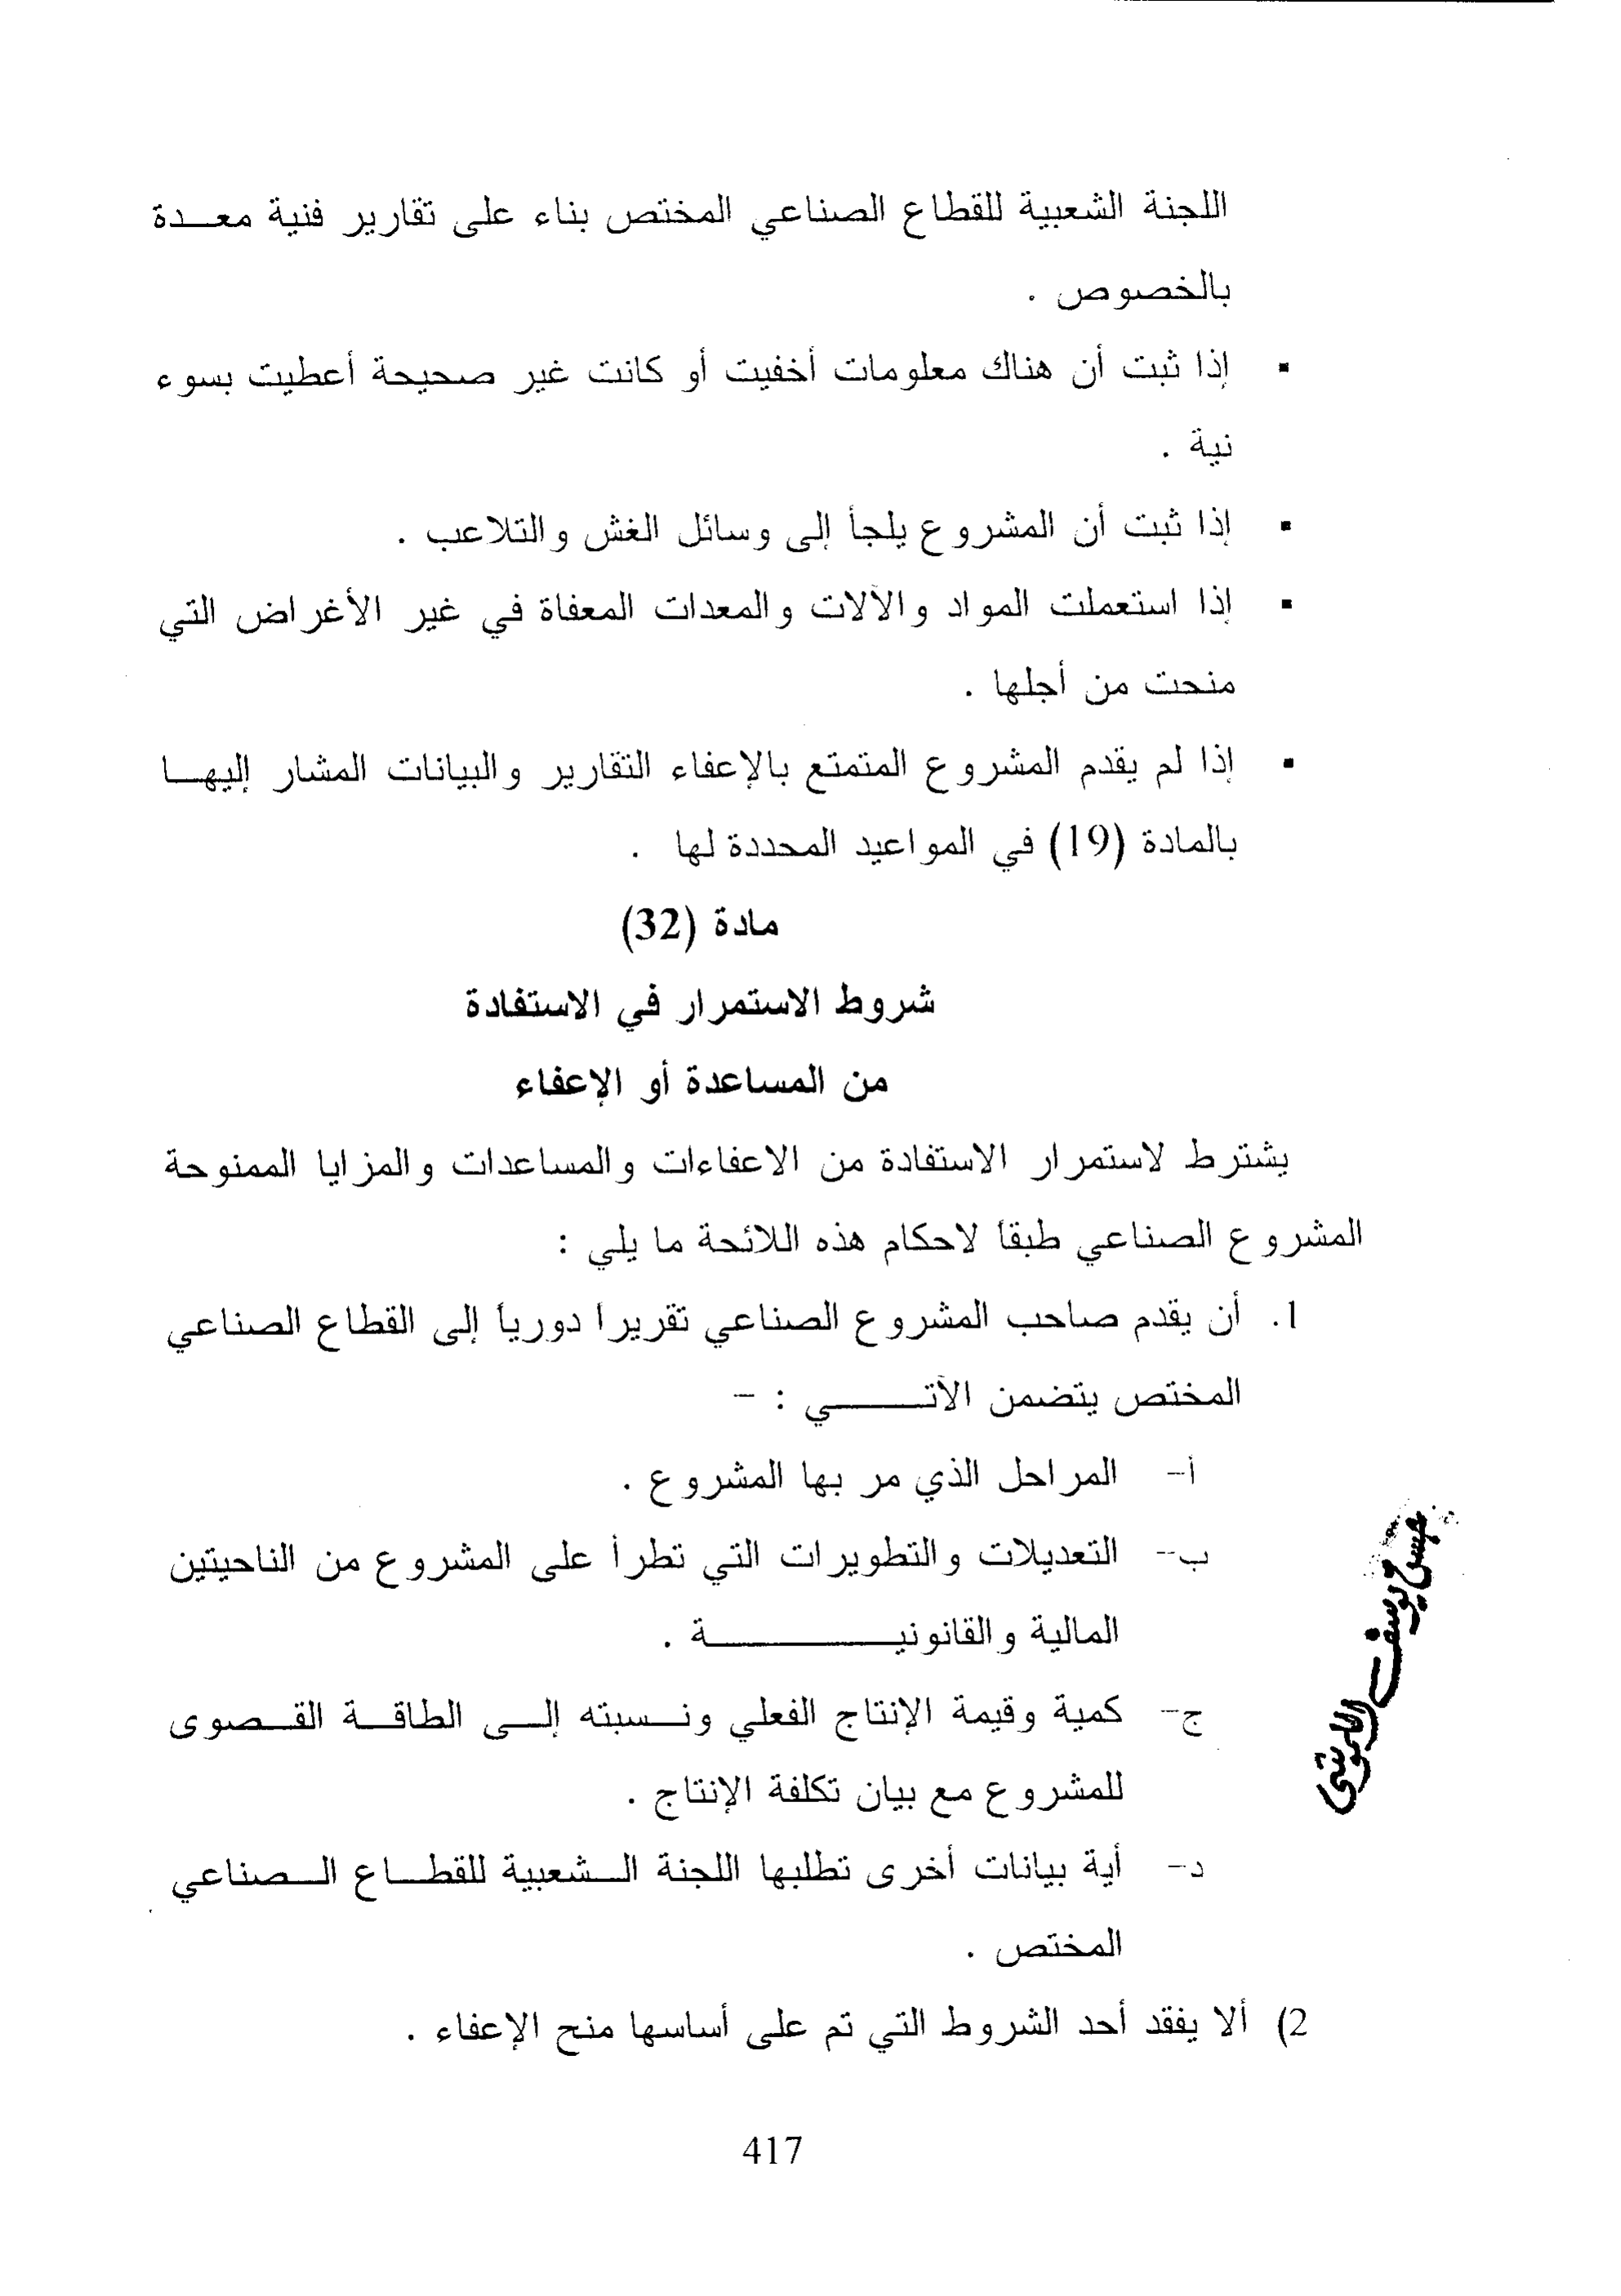 اللجنة الشعبية للقطاع الصناعي المختص بناء على تقارير فنية معدة
بالخصوص .
▪ إذا ثبت أن هناك معلومات أخفيت أو كانت غير صحيحة أعطيت بسوء
نية .
▪ إذا ثبت أن المشروع يلجأ إلى وسائل الغش والتلاعب .
▪ إذا استعملت المواد والآلات والمعدات المعفاة في غير الأغراض التي
منحت من أجلها .
▪ إذا لم يقدم المشروع المتمتع بالإعفاء التقارير والبيانات المشار إليها
بالمادة (19) في المواعيد المحددة لها .
مادة (32)
شروط الاستمرار في الاستفادة
من المساعدة أو الإعفاء
يشترط لاستمرار الاستفادة من الاعفاءات والمساعدات والمزايا الممنوحة
المشروع الصناعي طبقاً لاحكام هذه اللائحة ما يلي :
1. أن يقدم صاحب المشروع الصناعي تقريرا دورياً إلى القطاع الصناعي
المختص يتضمن الآتــــي : -
أ- المراحل الذي مر بها المشروع .
ب- التعديلات والتطويرات التي تطرأ على المشروع من الناحيتين
المالية والقانونيــــــــة .
ج- كمية وقيمة الإنتاج الفعلي ونسبته إلى الطاقة القصوى
للمشروع مع بيان تكلفة الإنتاج .
د- أية بيانات أخرى تطلبها اللجنة الشعبية للقطاع الصناعي
المختص .
2) ألا يفقد أحد الشروط التي تم على أساسها منح الإعفاء .
يوسف
417